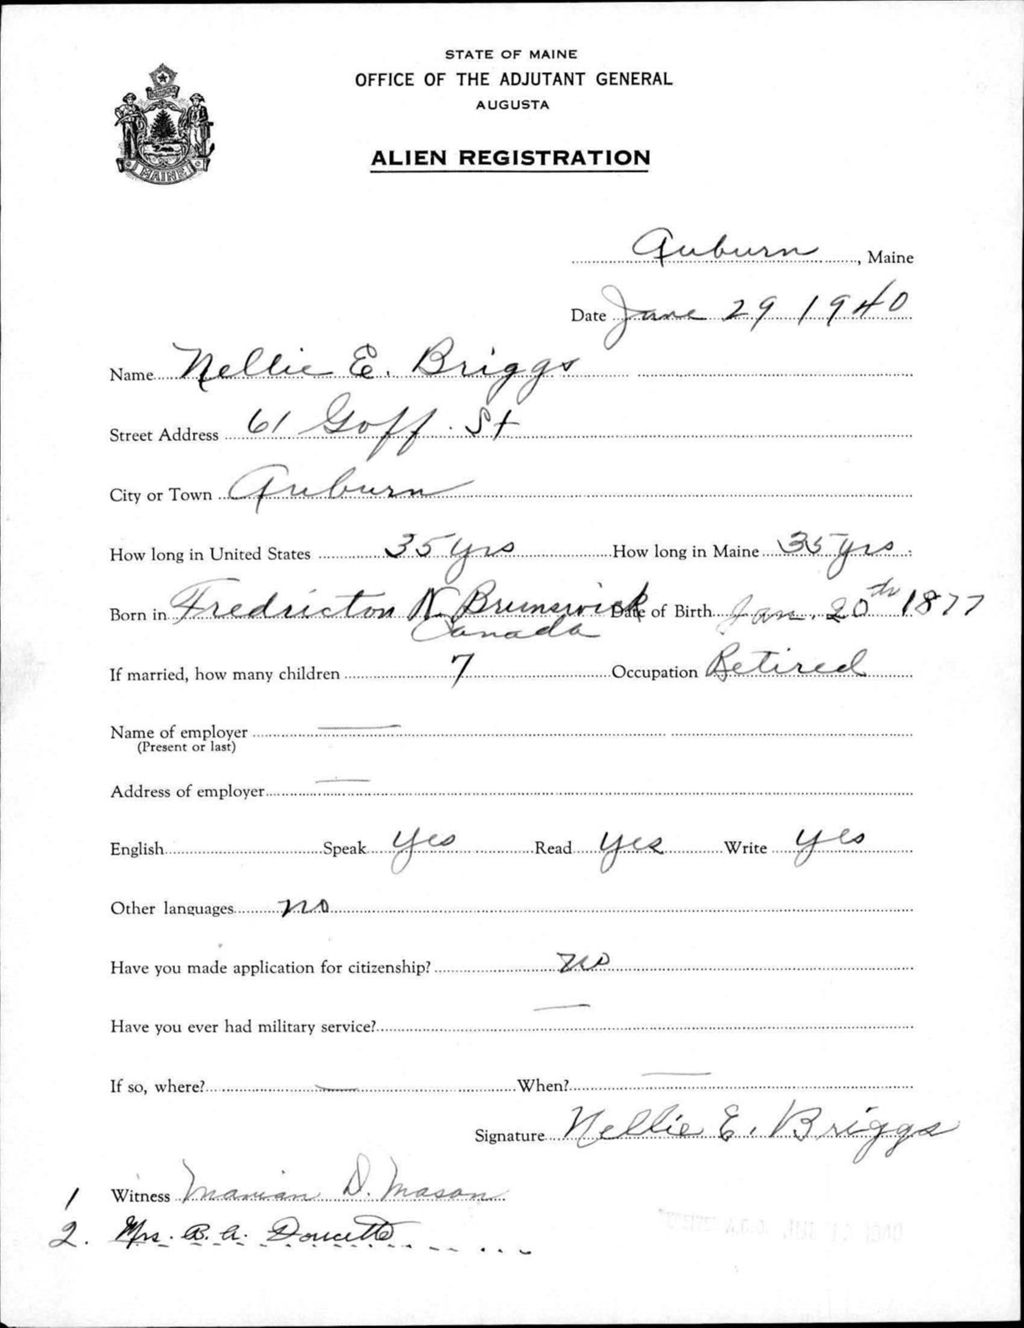 STATE OF MAINE
OFFICE OF THE ADJUTANT GENERAL
AUGUSTA
ALIEN REGISTRATION
MAINE
Auburn, Maine
Date June 29 1940
Name Nellie E. Briggs
Street Address 61 Goff St
City or Town Auburn
How long in United States 35 yrs How long in Maine 35 yrs
Born in Fredricton N. Brunswick Date of Birth Jan. 20th 1877
Canada
If married, how many children 7 Occupation Retired
Name of employer
(Present or last)
Address of employer
English Speak yes Read yes Write yes
Other languages no
Have you made application for citizenship? no
Have you ever had military service?
If so, where? When?
Signature Nellie E. Briggs
1 Witness Marian D. Mason
2. Mrs. B. A. Doucette